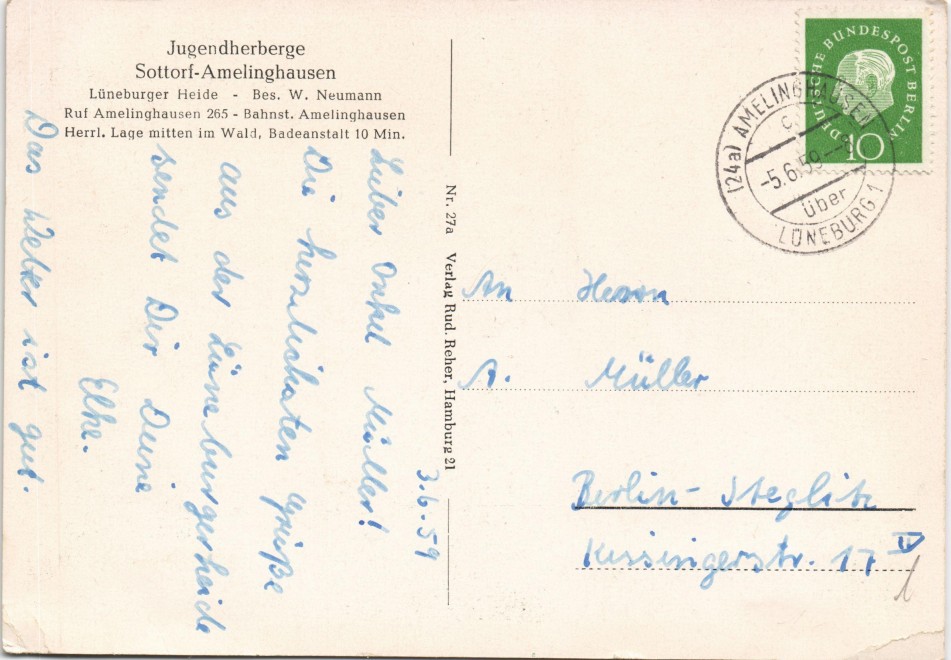 Jugendherberge
Sottorf-Amelinghausen
Lüneburger Heide - Bes. W. Neumann
Ruf Amelinghausen 265 - Bahnst. Amelinghausen
Herrl. Lage mitten im Wald, Badeanstalt 10 Min.
3.6.59
Lieber Onkel Müller!
Die herzlichsten Grüße
aus der Lüneburgerheide
sendet Dir Deine
Elke.
Das Wetter ist gut.
Nr. 27a Verlag Rud. Reher, Hamburg 21
DEUTSCHE BUNDESPOST BERLIN
10
(24a) AMELINGHAUSEN
c
-5.6.59.--8
über
LÜNEBURG 1
An Herrn
A. Müller
Berlin-Steglitz
Kissingerstr. 17 II
1